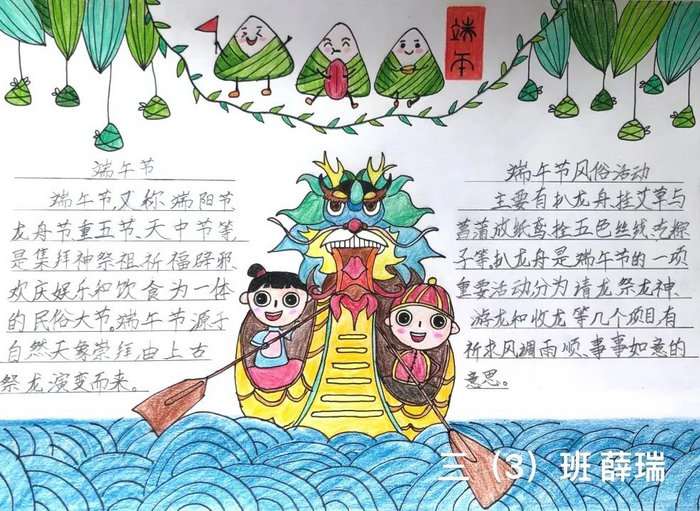 端午
端午节
端午节,又称端阳节
龙舟节、重五节、天中节等
是集拜神祭祖祈福辟邪
欢庆娱乐和饮食为一体
的民俗大节,端午节源于
自然天象崇拜,由上古
祭龙演变而来。
端午节风俗活动
主要有扒龙舟、挂艾草与
菖蒲放纸鸢、拴五色丝线、吃粽
子等,扒龙舟是端午节的一项
重要活动分为请龙祭龙神、
游龙和收龙等几个项目有
祈求风调雨顺、事事如意的
意思。
三（3）班薛瑞